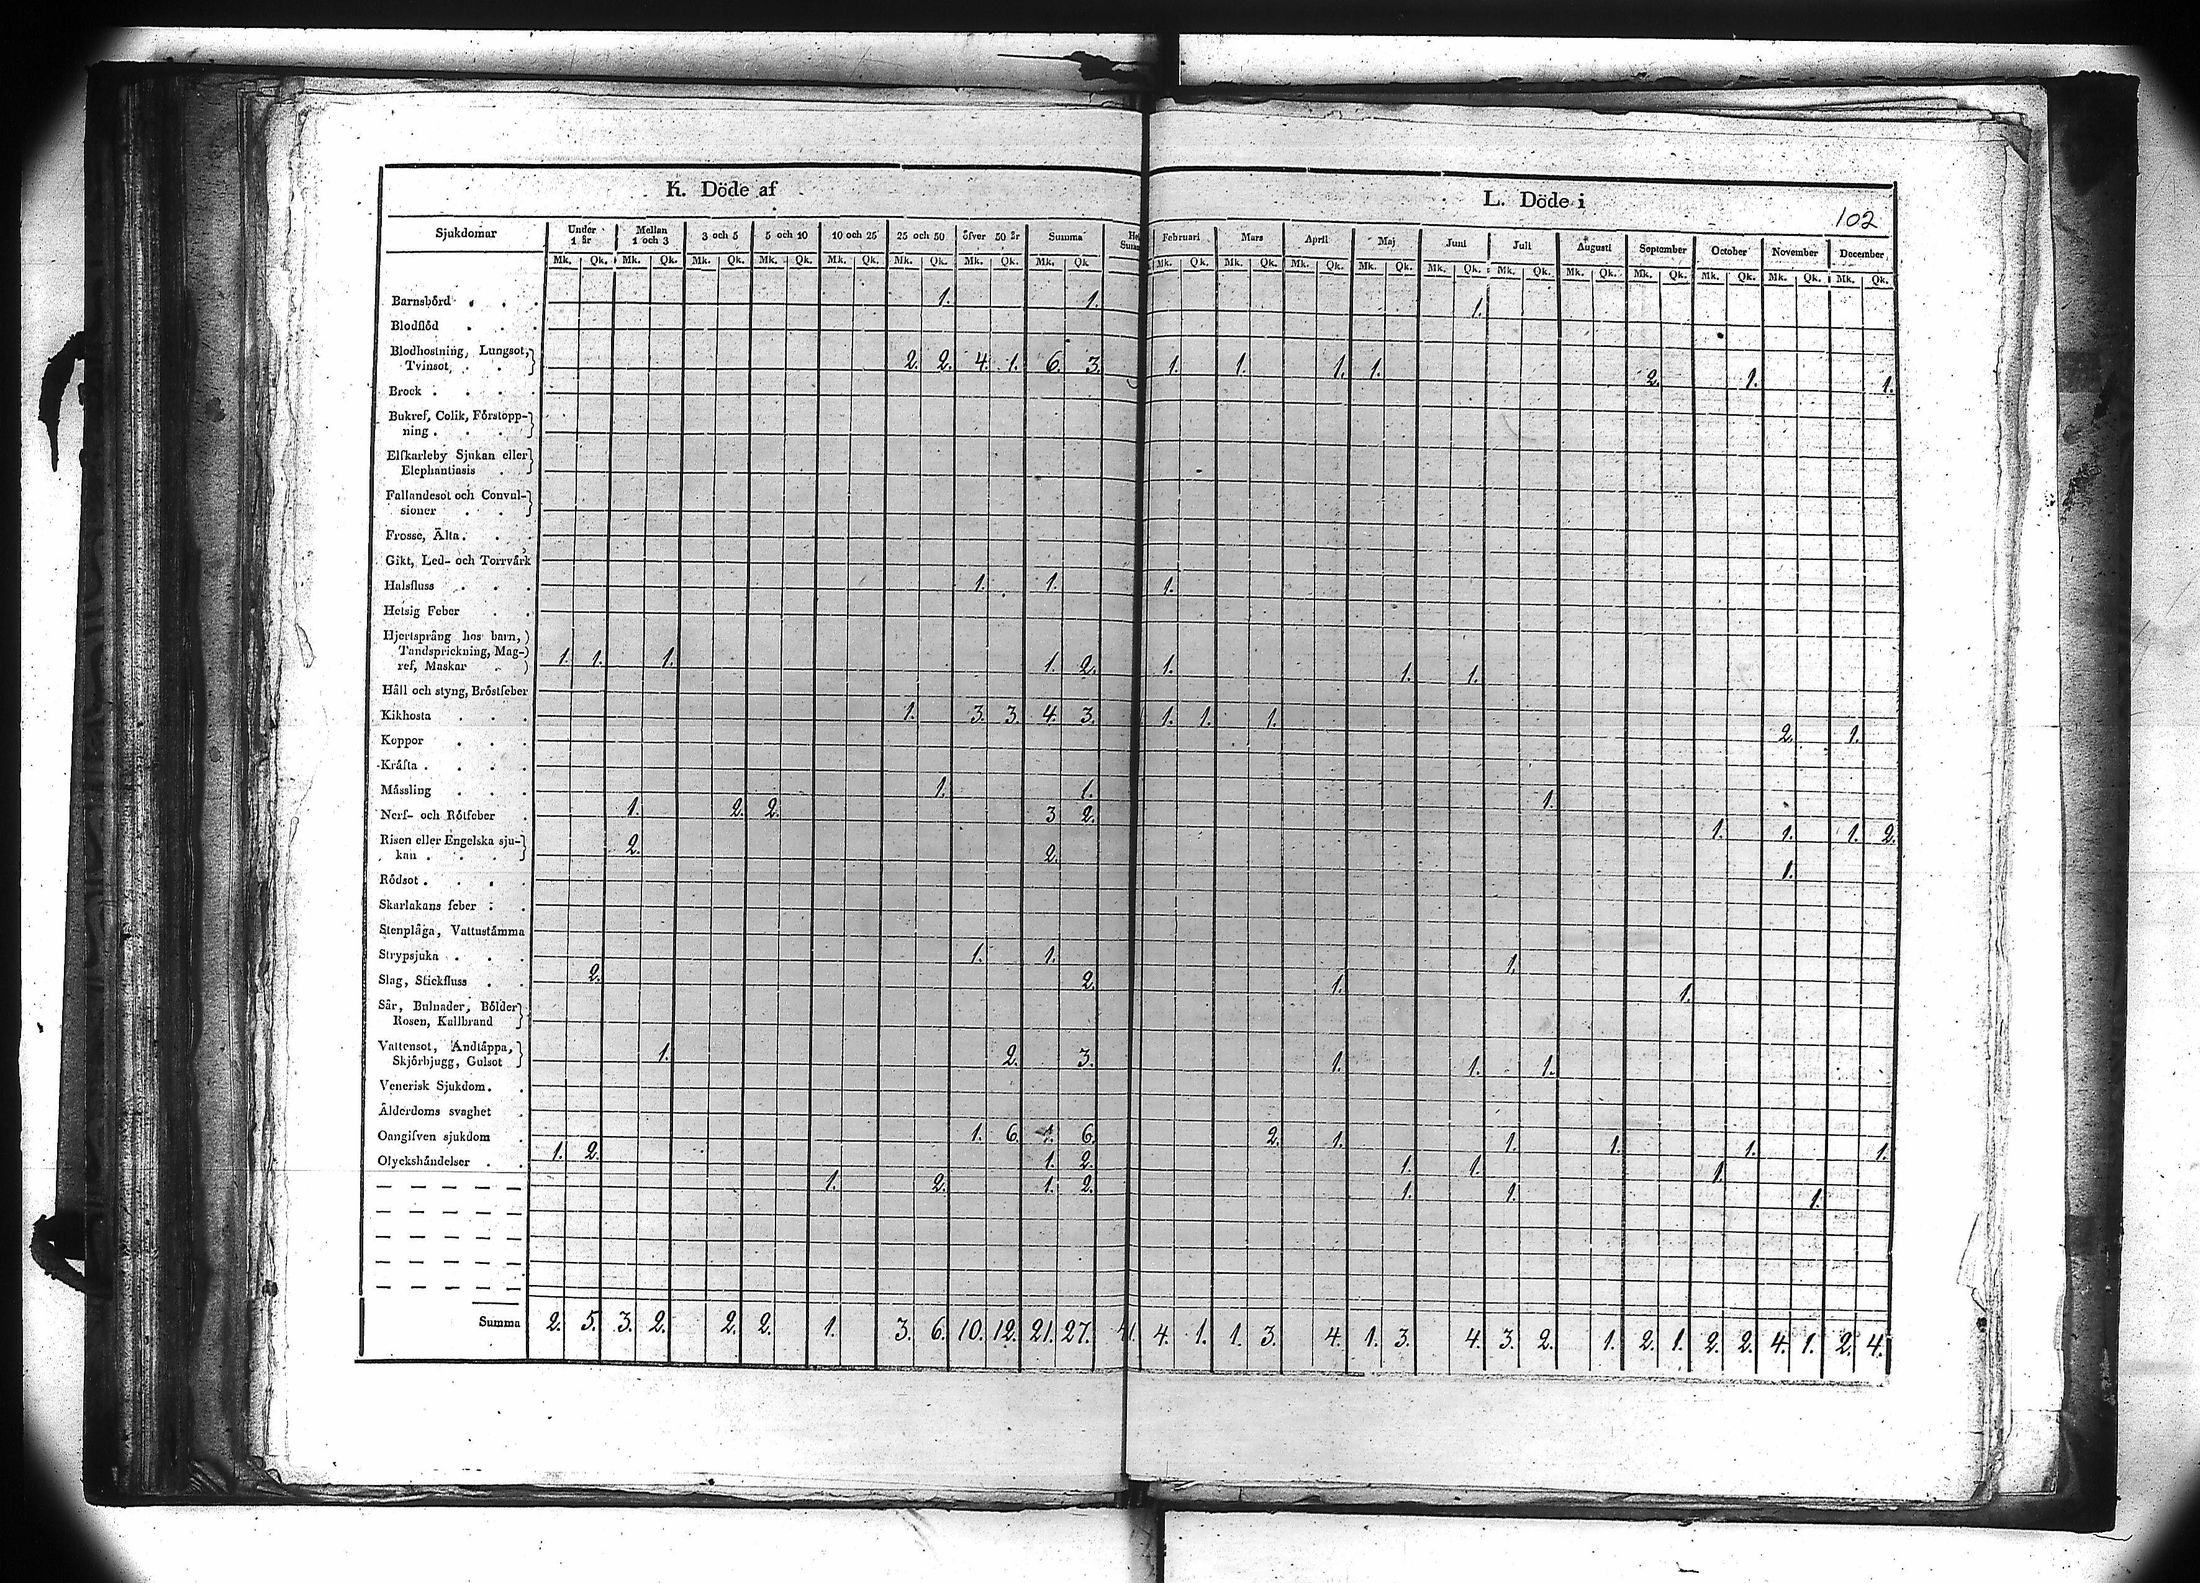 K. Döde af
L. Döde i
102
Sjukdomar Under 1 år Mellan 1 och 3 3 och 5 5 och 10 10 och 25 25 och 50 öfver 50 år Summa Februari Mars April Maj Juni Juli Augusti September October November December
Mk. Qk. Mk. Qk. Mk. Qk. Mk. Qk. Mk. Qk. Mk. Qk. Mk. Qk. Mk. Qk Mk. Qk. Mk. Qk. Mk. Qk. Mk. Qk. Mk. Qk. Mk. Qk. Mk. Qk. Mk. Qk. Mk. Qk. Mk. Qk. Mk. Qk.
Barnsbörd 1. 1. 1.
Blodflöd
Blodhostning, Lungsot,
Tvinsot, 2. 2. 4. 1. 6. 3. 1. 1. 1. 1. 2. 1. 1.
Brock
Bukref, Colik, Förstopp-
ning
Elfkarleby Sjukan eller
Elephantiasis
Fallandesot och Convul-
sioner
Frosse, Älta
Gikt, Led- och Torrvärk
Halsfluss 1. 1. 1.
Hetsig Feber
Hjertsprång hos barn,
Tandsprickning, Mag-
ref, Maskar 1. 1. 1. 1. 2. 1. 1. 1.
Håll och styng, Bröstfeber
Kikhosta 1. 3. 3. 4. 3. 1. 1. 1. 2. 1.
Koppor
Kräfta
Mässling 1. 1. 1.
Nerf- och Rötfeber 1. 2. 2. 3 2. 1. 1. 1. 2.
Risen eller Engelska sju-
kan 2. 2. 1.
Rödsot
Skarlakans feber
Stenplåga, Vattustämma
Strypsjuka 1. 1. 1.
Slag, Stickfluss 2. 2. 1. 1.
Sår, Bulnader, Bölder
Rosen, Kallbrand
Vattensot, Andtäppa,
Skjörbjugg, Gulsot 1. 2. 3. 1. 1. 1.
Venerisk Sjukdom.
Ålderdoms svaghet
Oangifven sjukdom 1. 6. 1. 6. 2. 1. 1. 1. 1. 1.
Olyckshändelser 1. 2. 1. 2. 1. 1. 1.
1. 2. 1. 2. 1. 1. 1.
Summa 2. 5. 3. 2. 2. 2. 1. 3. 6. 10. 12. 21. 27. 4. 1. 1. 3. 4. 1. 3. 4. 3. 2. 1. 2. 1. 2. 2. 4. 1. 2. 4.